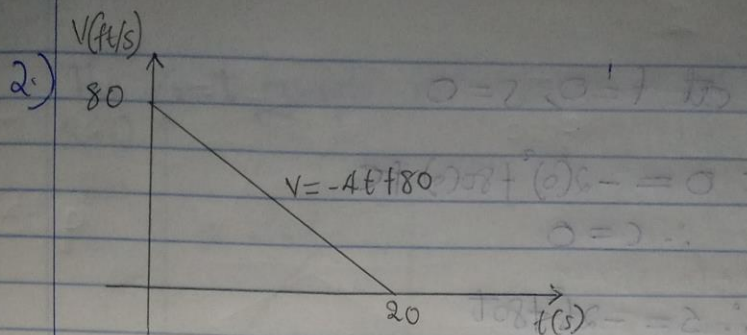 V(ft/s)
2.)
80
V = -4t + 80
20
t(s)